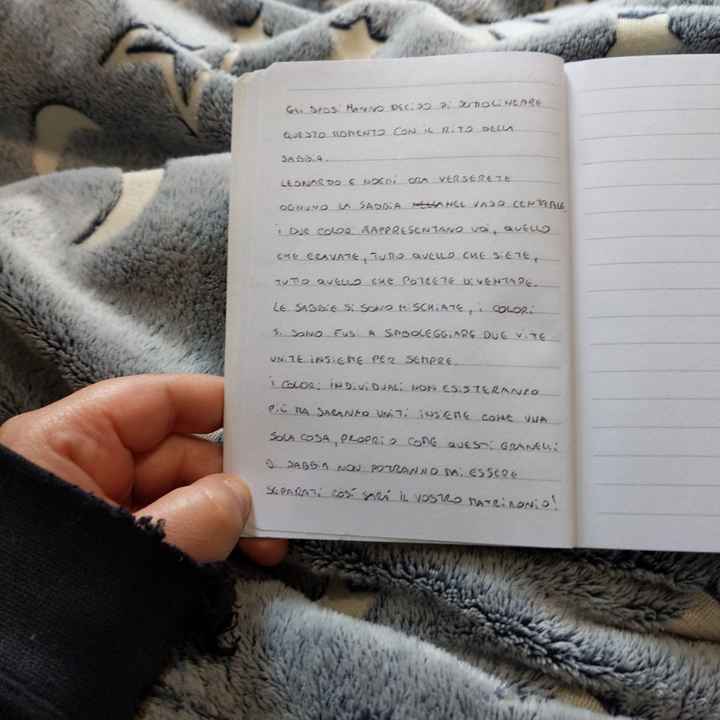 GLI SPOSI HANNO DECISO DI SOTTOLINEARE
QUESTO MOMENTO CON IL RITO DELLA
SABBIA.
LEONARDO E NOEMI ORA VERSERETE
OGNUNO LA SABBIA NEL VASO CENTRALE
I DUE COLORI RAPPRESENTANO VOI, QUELLO
CHE ERAVATE, TUTTO QUELLO CHE SIETE,
TUTTO QUELLO CHE POTRETE DIVENTARE.
LE SABBIE SI SONO MISCHIATE, I COLORI
SI SONO FUSI A SIMBOLEGGIARE DUE VITE
UNITE INSIEME PER SEMPRE.
I COLORI INDIVIDUALI NON ESISTERANNO
PIÙ MA SARANNO UNITI INSIEME COME UNA
SOLA COSA, PROPRIO COME QUESTI GRANELLI
DI SABBIA NON POTRANNO MAI ESSERE
SEPARATI COSÌ SARÀ IL VOSTRO MATRIMONIO!